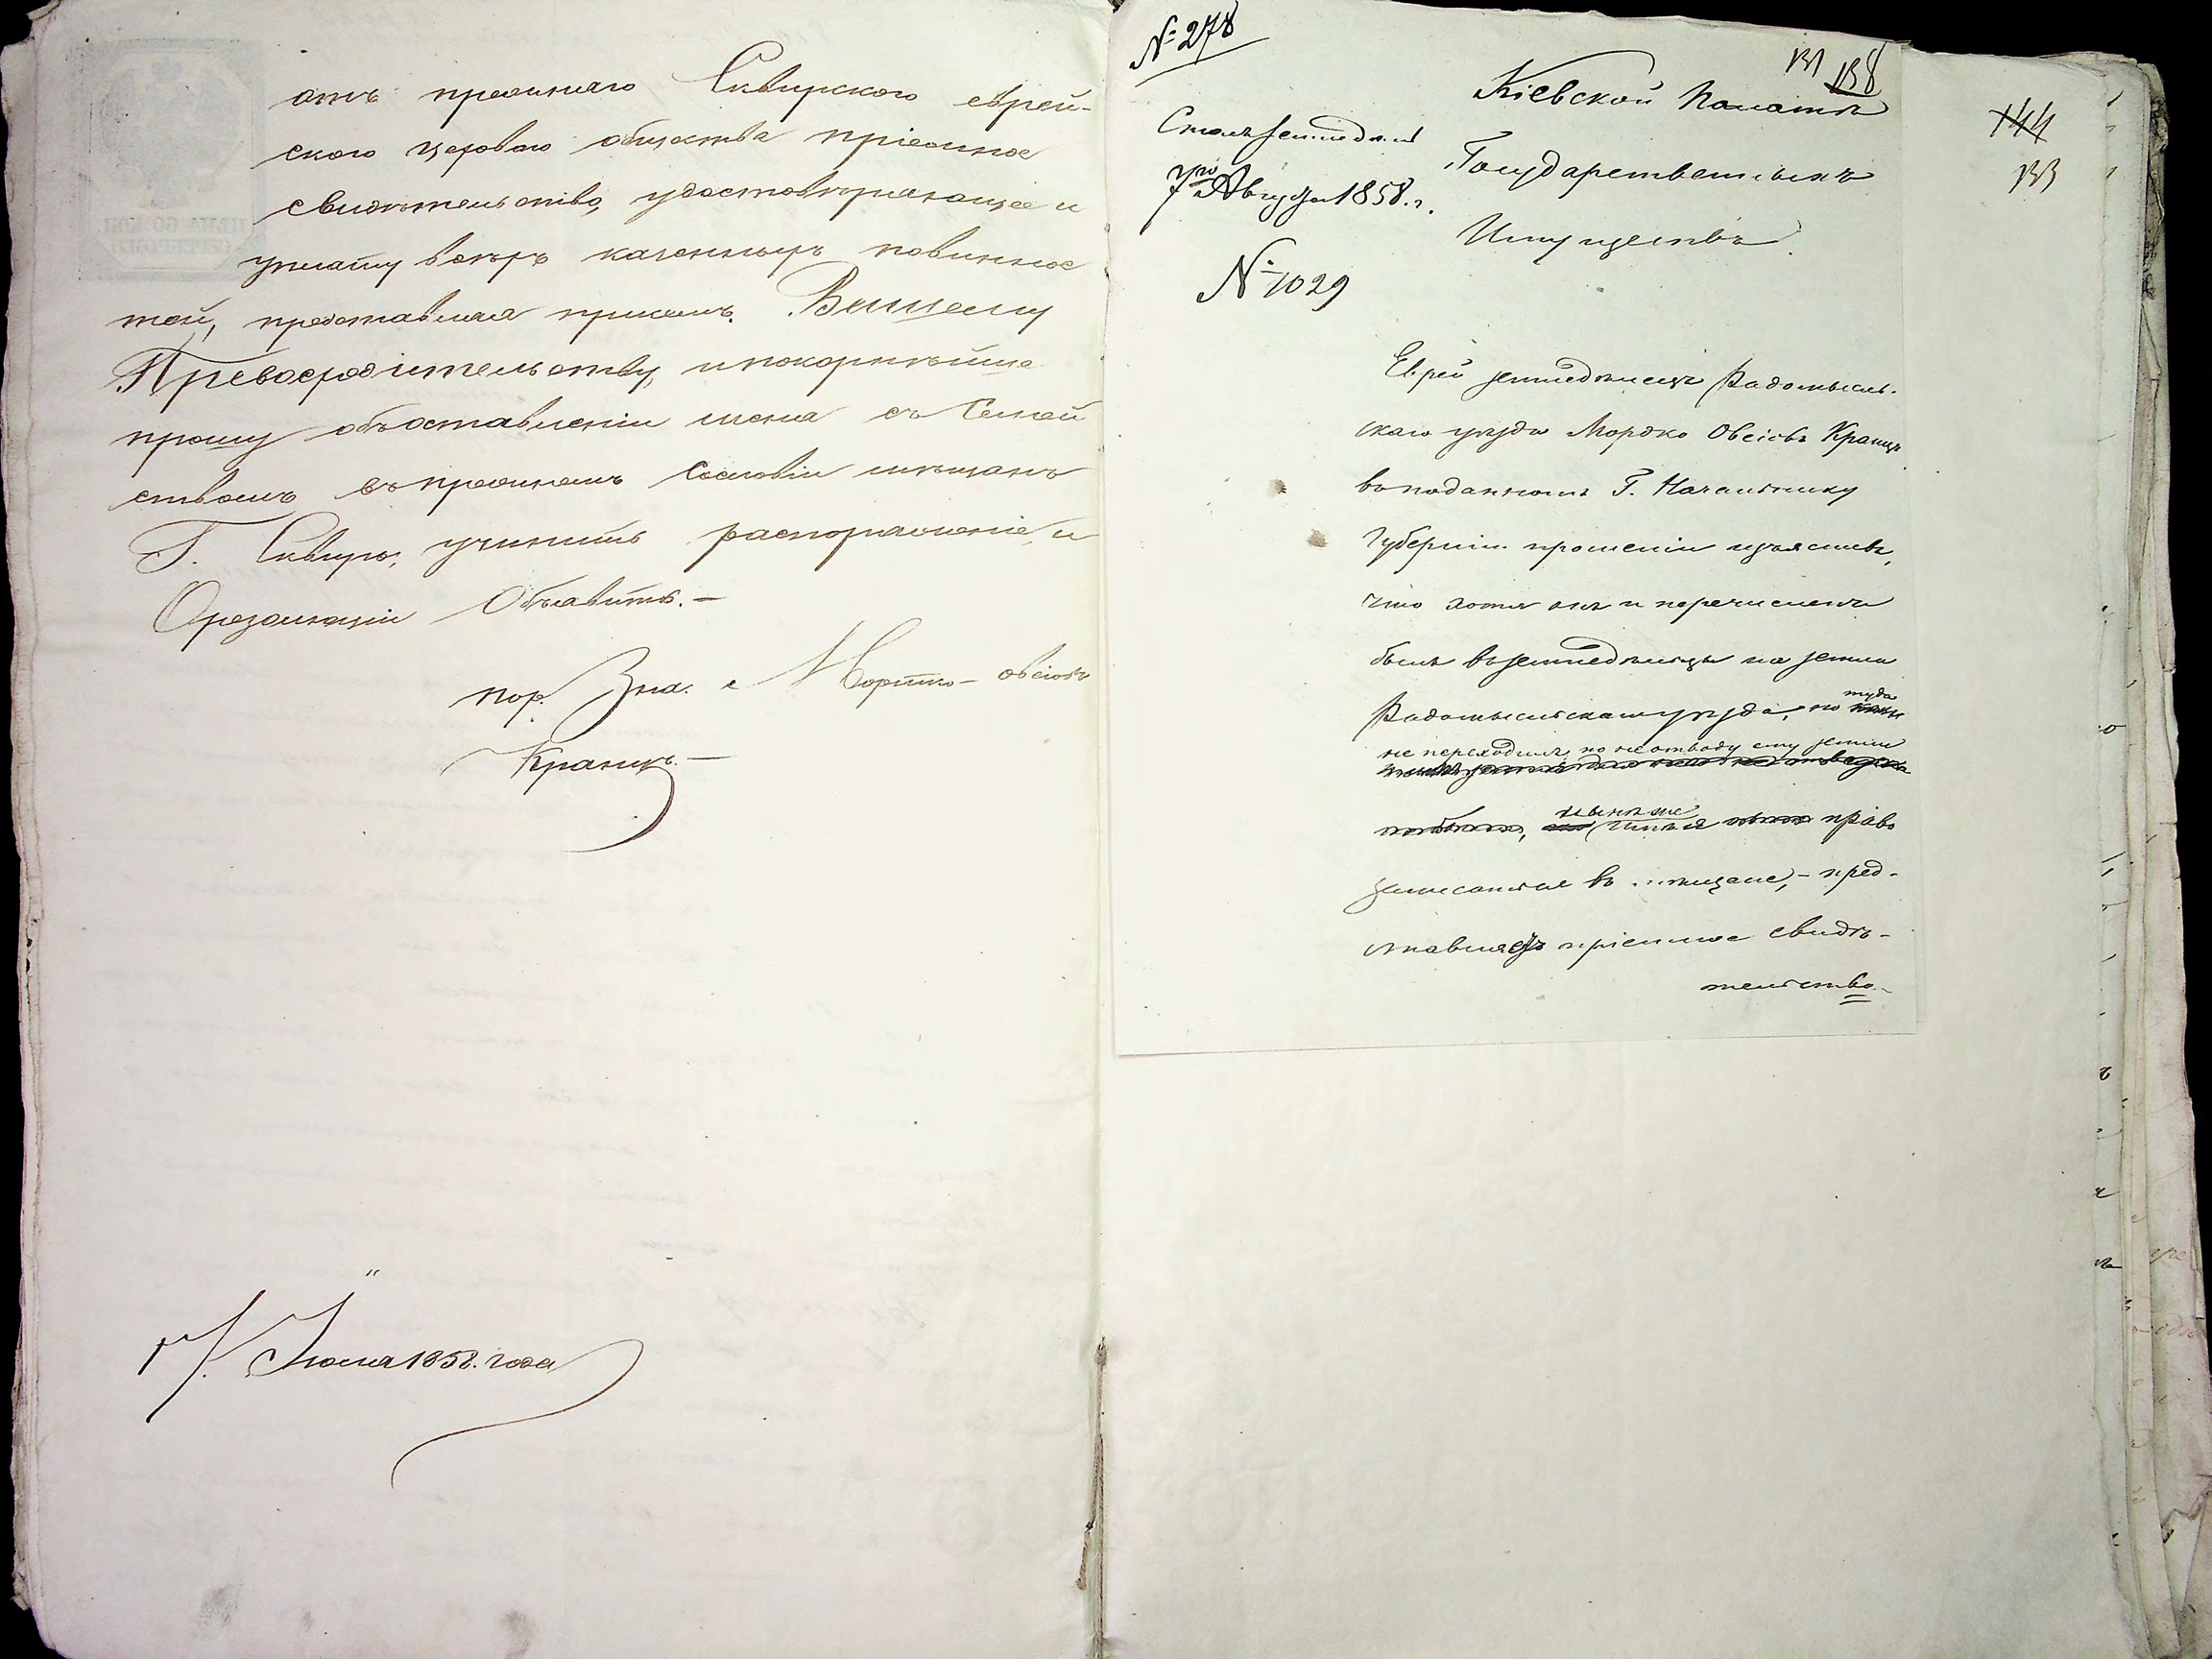 отъ прежняго Сквирского еврей-
ского общества пріемное
свидѣтельство, удостовѣряющее и
уплату всѣхъ казенныхъ повиннос
тей, представляя присемъ Вашему
Превосходительству, и покорнѣйше
прошу объоставленіи меня съ Семей
ствомъ въ прежнемъ Сословіи мѣщанъ
Г. Сквиры, учинить распоряженіе, и
Орезолюціи Объявить. —
Мортко - овсіовъ
Кранцъ. —
Июля 1858. года
№ 278
131 138
144
133
Кіевской Палатѣ
Государственныхъ
Имуществъ
7го Августа 1858. г.
№ 1029
Еврей земледѣлецъ Радомысль-
скаго уѣзда Мордко Овсіовъ Кранцъ
въ поданномъ Г. Начальнику
Губерніи прошеніи изъяснивъ,
что хотя онъ и перечисленъ
былъ въ земледѣльцы на земли
Радомысльскаго уѣзда, но туда
не переходилъ, по неотводу ему земли
нынѣ же имѣя право
записаться въ мѣщане, - пред-
ставляетъ пріемное свидѣ-
тельство.